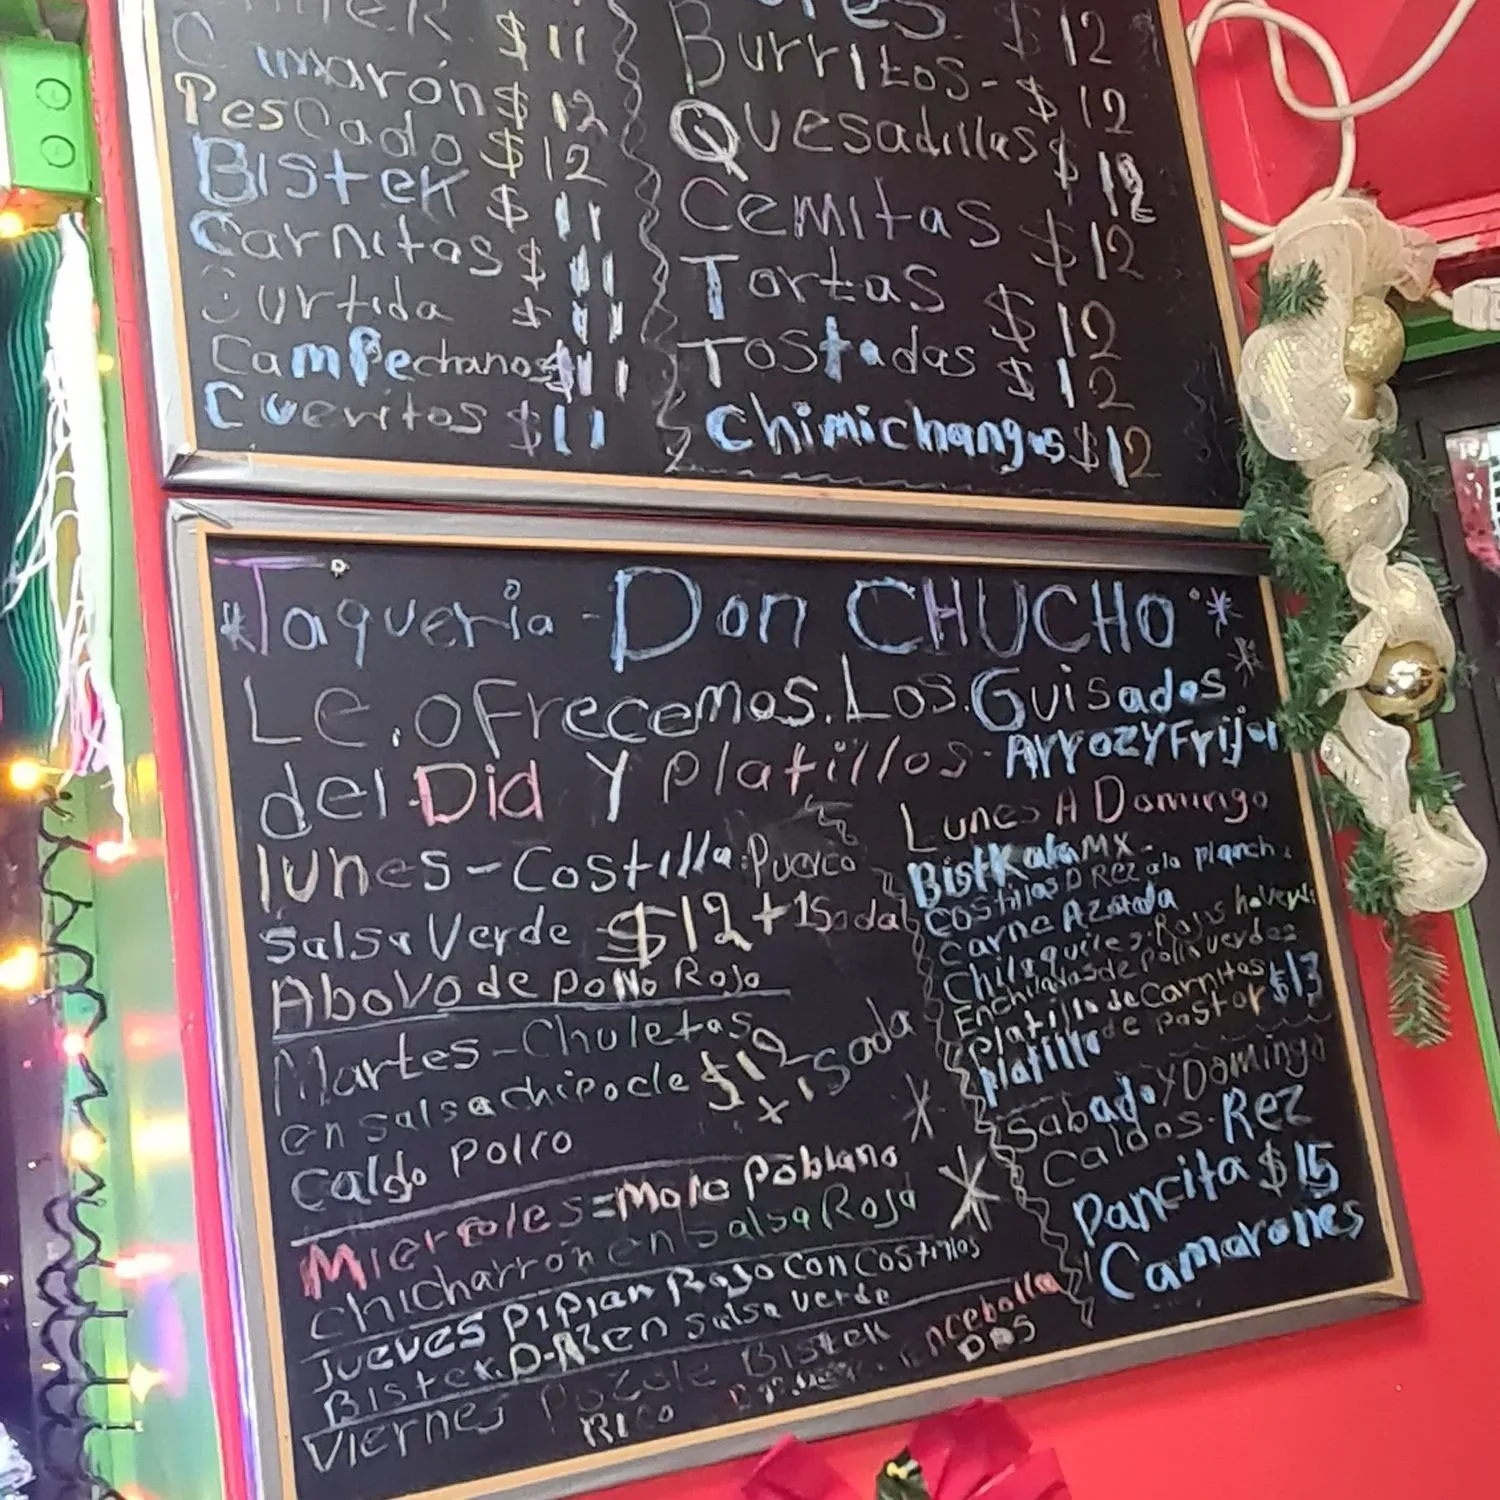 $11
Camarón $12
Pescado $12
Bistek $11
Carnitas $11
Surtida $11
Campechanos $11
Cueritos $11
$12
Burritos- $12
Quesadillas $12
Cemitas $12
Tortas $12
Tostadas $12
Chimichangas $12
*Taqueria - Don CHUCHO*
Le.oFrecemos.Los.Guisados*
del Dia Y platillos- Arroz Y Frijol
lunes-Costilla:Puerco
Salsa Verde $12+1Soda
AboVo de pollo Rojo
Martes-Chuletas
en salsa chipocle $12 x 1 Soda
Caldo Pollo
Miercoles=Mole Poblano
chicharrón en Salsa Roja
Jueves Pipian Rojo Con Costillas
Bistek.D-Rez en salsa verde
Viernes Pozole Bistek
Rico encebolla
Dos
Lunes A Domingo
Bistk ala MX-
Costillas D Rez ala planch
Carne Azada
Chilaquiles-Rojos
Enchiladas de Pollo verdes
Platillo de Carnitas $13
Platillo de Pastor
Sabado Y Domingo
Caldos-Rez
Pancita $15
Camarones